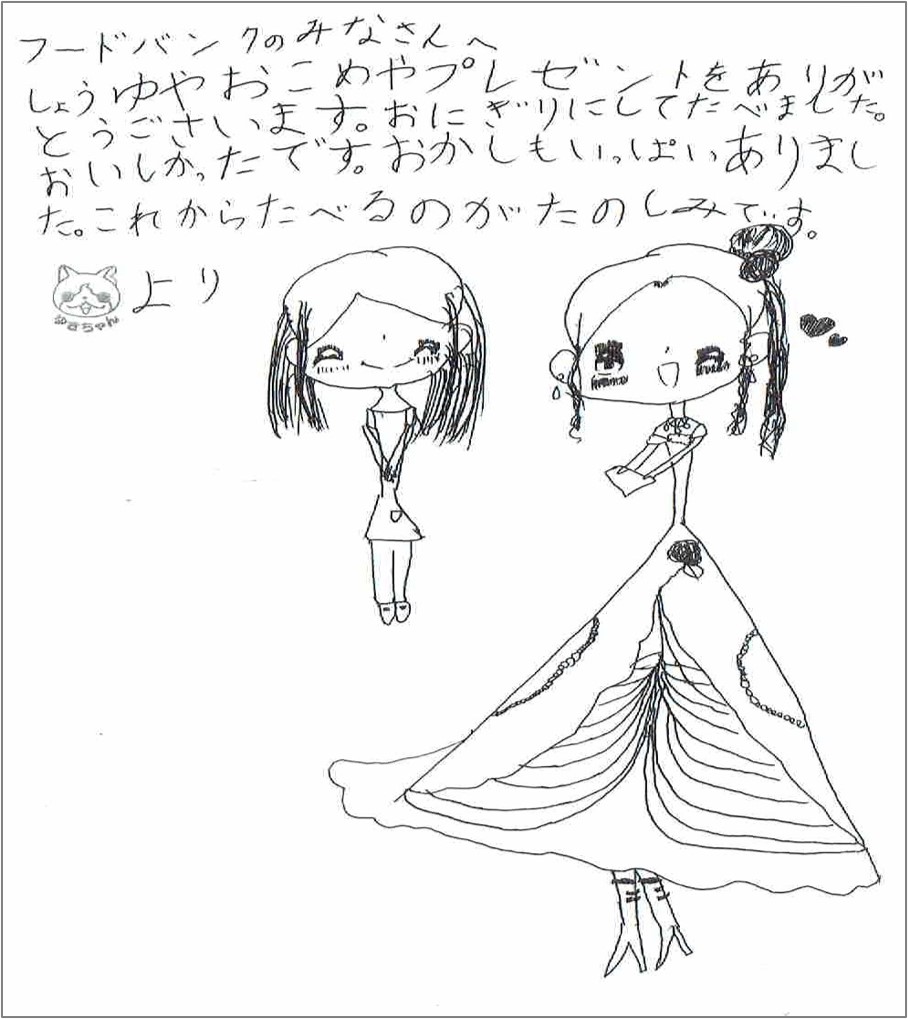 フードバンクのみなさんへ
しょうゆやおこめやプレゼントをありが
とうごさいます。おにぎりにしてたべました。
おいしかったです。おかしもいっぱいありまし
た。これからたべるのがたのしみです。
より